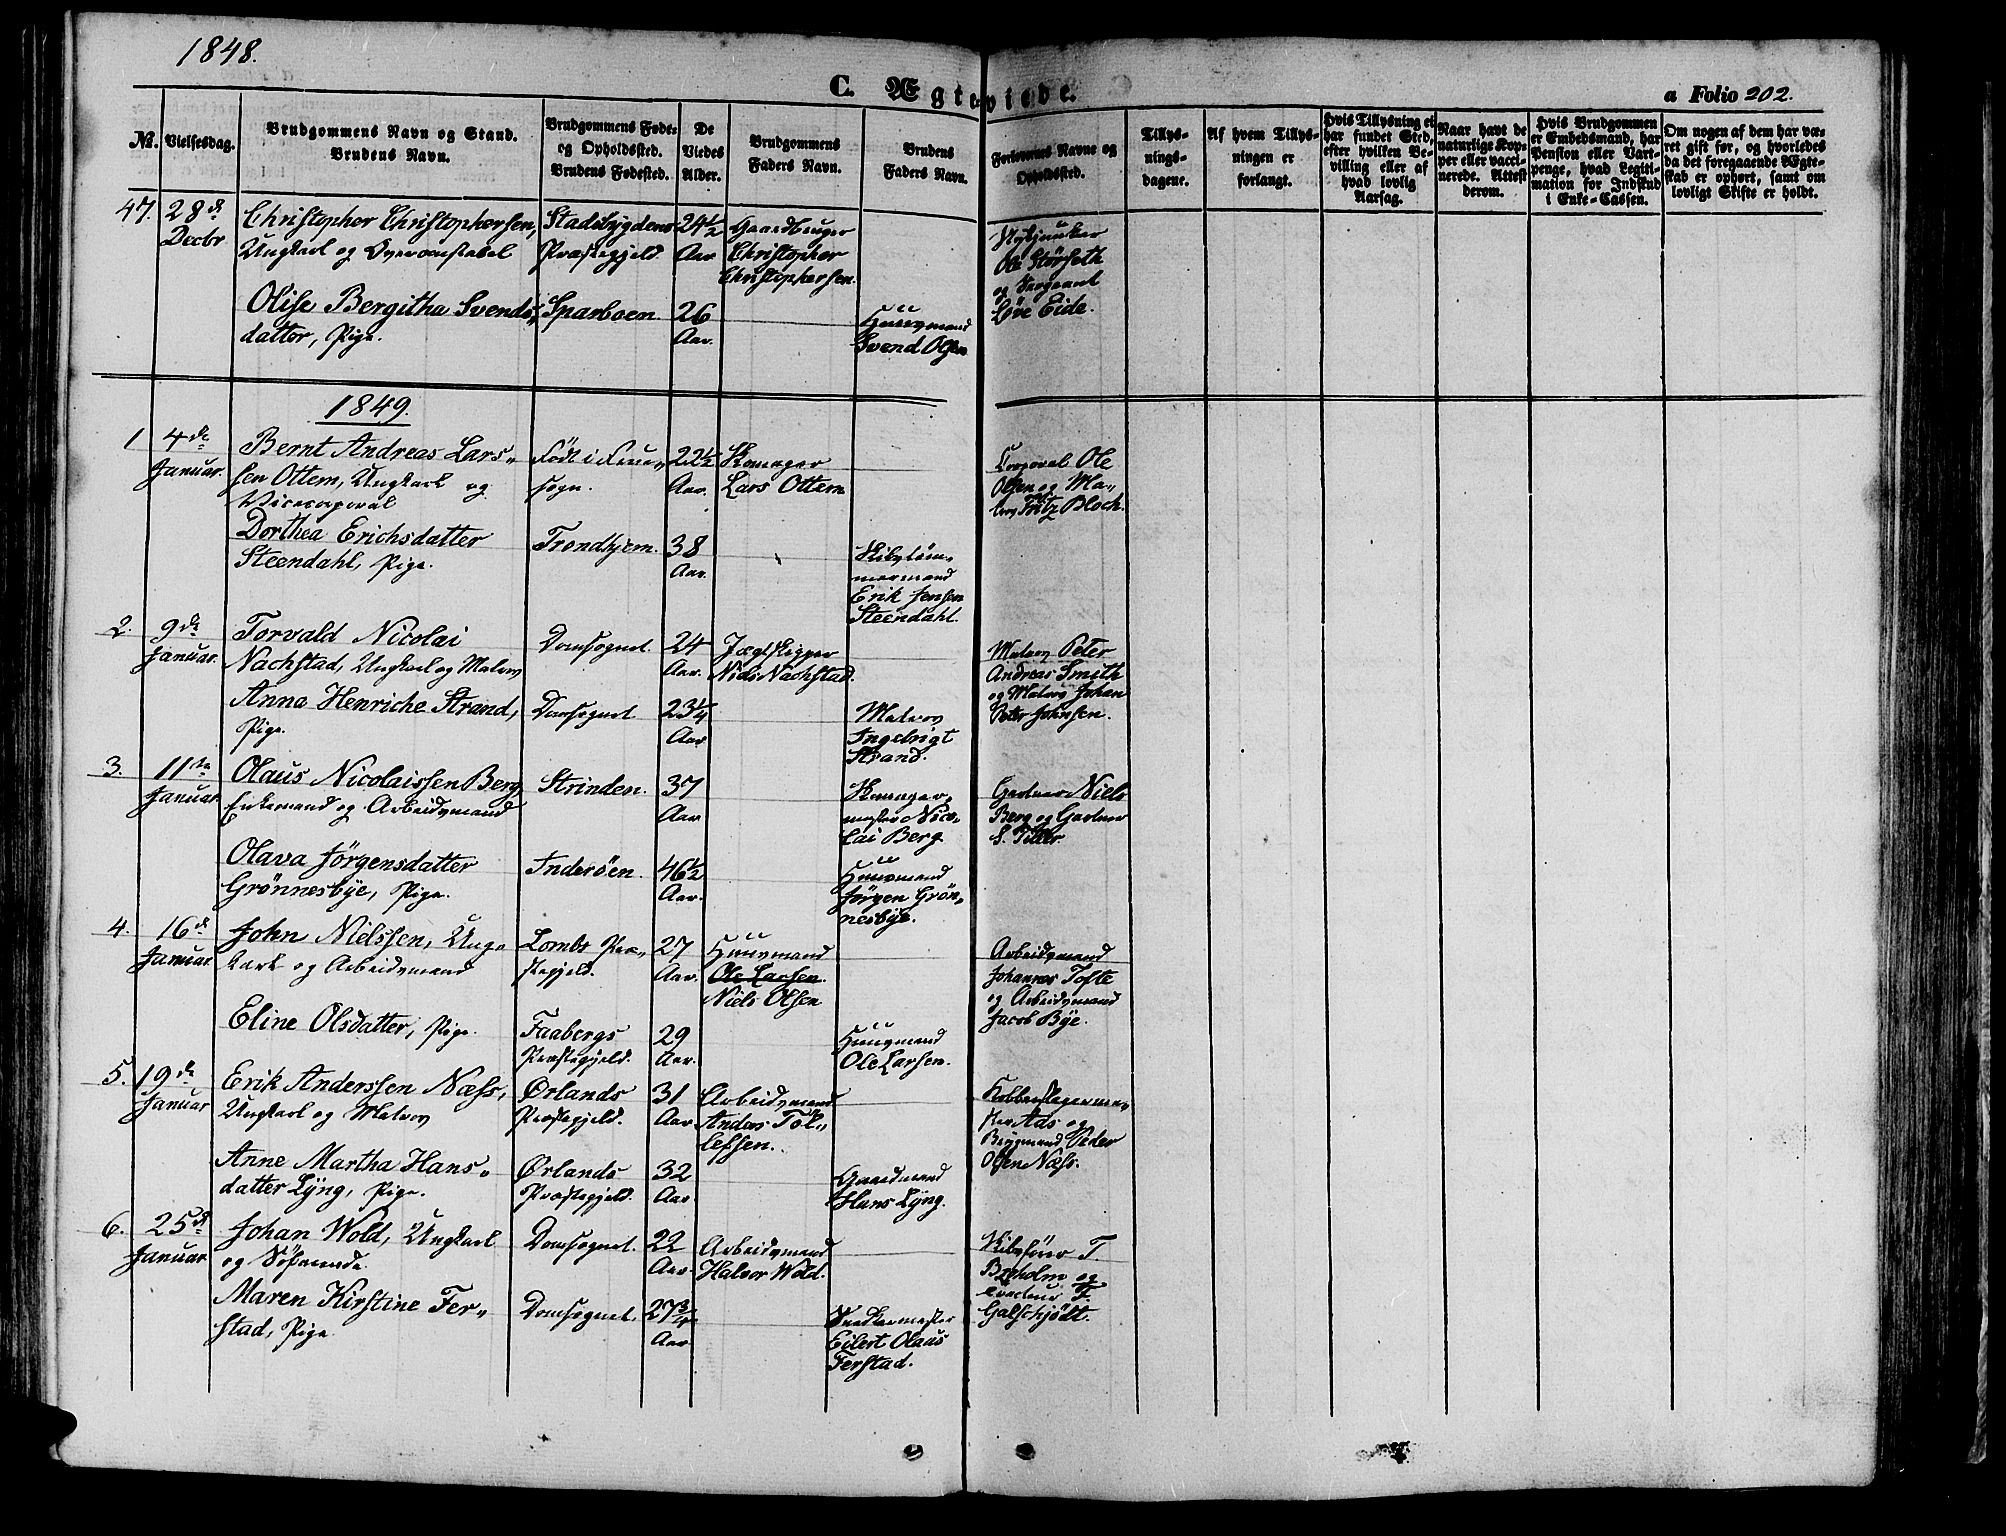 1848.
C. Ægteviede.
a Folio 202.
No. Vielsesdag. Brudgommens Navn og Stand. Brudens Navn. Brudgommens Føde- og Opholdssted. Brudens Fødested. De Viedes Alder. Brudgommens Faders Navn. Brudens Faders Navn. Forlovernes Navne og Opholdssted. Tillysningsdagene. Af hvem Tillysningen er forlangt. Hvis Tillysning ei har fundet Sted, efter hvilken Bevilling eller af hvad lovlig Aarsag. Naar havt de naturlige Kopper eller vaccinerede. Attest derom. Hvis Brudgommen er Embedsmand, har Pension eller Vartpenge, hvad Legitimation for Indskud i Enke-Cassen. Om nogen af dem har været gift før, og hvorledes da det foregaaende Ægteskab er ophørt, samt om lovligt Skifte er holdt.
47. 28de Decbr
Christopher Christophersen,
Ungkarl og Overconstabel
Stadsbygdens
Præstegjeld.
24½
Aar
Gaardbruger
Christopher
Christophersen.
Ole Störseth
og Sergeant
Löve Eide.
Olise Bergitha Svends-
datter, Pige.
Sparboen
26
Aar.
Huusmand
Svend Olsen
1849.
1 4de Januar.
Bernt Andreas Lars-
sen Ottem, Ungkarl og
Vicecorporal
Födt i Frue-
sogn.
22½
Aar.
Lars Ottem
Corporal Ole
Olsen og Ma-
tros Fritz Bloch.
Dorthea Erichsdatter
Steendahl, Pige.
Trondhjem.
38
Aar.
Skibstöm-
mermand
Erik Jensen
Steendahl.
2. 9de Januar.
Torvald Nicolai
Nachstad, Ungkarl og Matros
Domsognet.
24
Aar.
Jægtskipper
Niels Nachstad.
Matros Peter
Andreas Smith
og Matros Johan
Peter Johnsen.
Anna Henriche Strand,
Pige.
Domsognet
23¼
Aar
Matros
Ingebrigt
Strand.
3. 11te Januar
Olaus Nicolaissen Berg,
Enkemand og Arbeidsmand
Strinden.
37
Aar
mester Nico-
lai Berg
Gartner Niels
Berg og Gartner
Olava Jörgensdatter
Grönnesbÿe, Pige.
Inderöen.
46½
Aar.
Huusmand
Jörgen Grön-
nesbÿe.
4. 16de Januar
John Nielssen, Ung-
karl og Arbeidsmand
Lombs Præ-
stegjeld.
27
Aar.
Huusmand
Ole Larsen.
Niels Olsen
Arbeidsmand
Johannes Tofte
og Arbeidsmand
Jacob Bÿe.
Eline Olsdatter, Pige.
Faabergs
Præstegjeld.
29
Aar.
Huusmand
Ole Larsen.
5. 19de Januar
Erik Anderssen Næss,
Ungkarl og Matros
Ørlands
Præstegjeld.
31
Aar
Arbeidsmand
Anders Tol-
lefsen.
Kobberslagerme-
ster Ads og
Peder
Olsen Næss.
Anne Martha Hans-
datter Lÿng, Pige.
Ørlands
Præstegjeld.
32
Aar
Gaardmand
Hans Lÿng.
6. 25de Januar
Johan Wold, Ungkarl
og Söemand.
Domsognet.
22
Aar.
Arbeidsmand
Halvor Wold.
Skibsförer T.
og
F.
Galschjödt.
Maren Kirstine Fer-
stad, Pige.
Domsognet.
27¾
Aar
Snedkermester
Eilert Olaus
Ferstad.